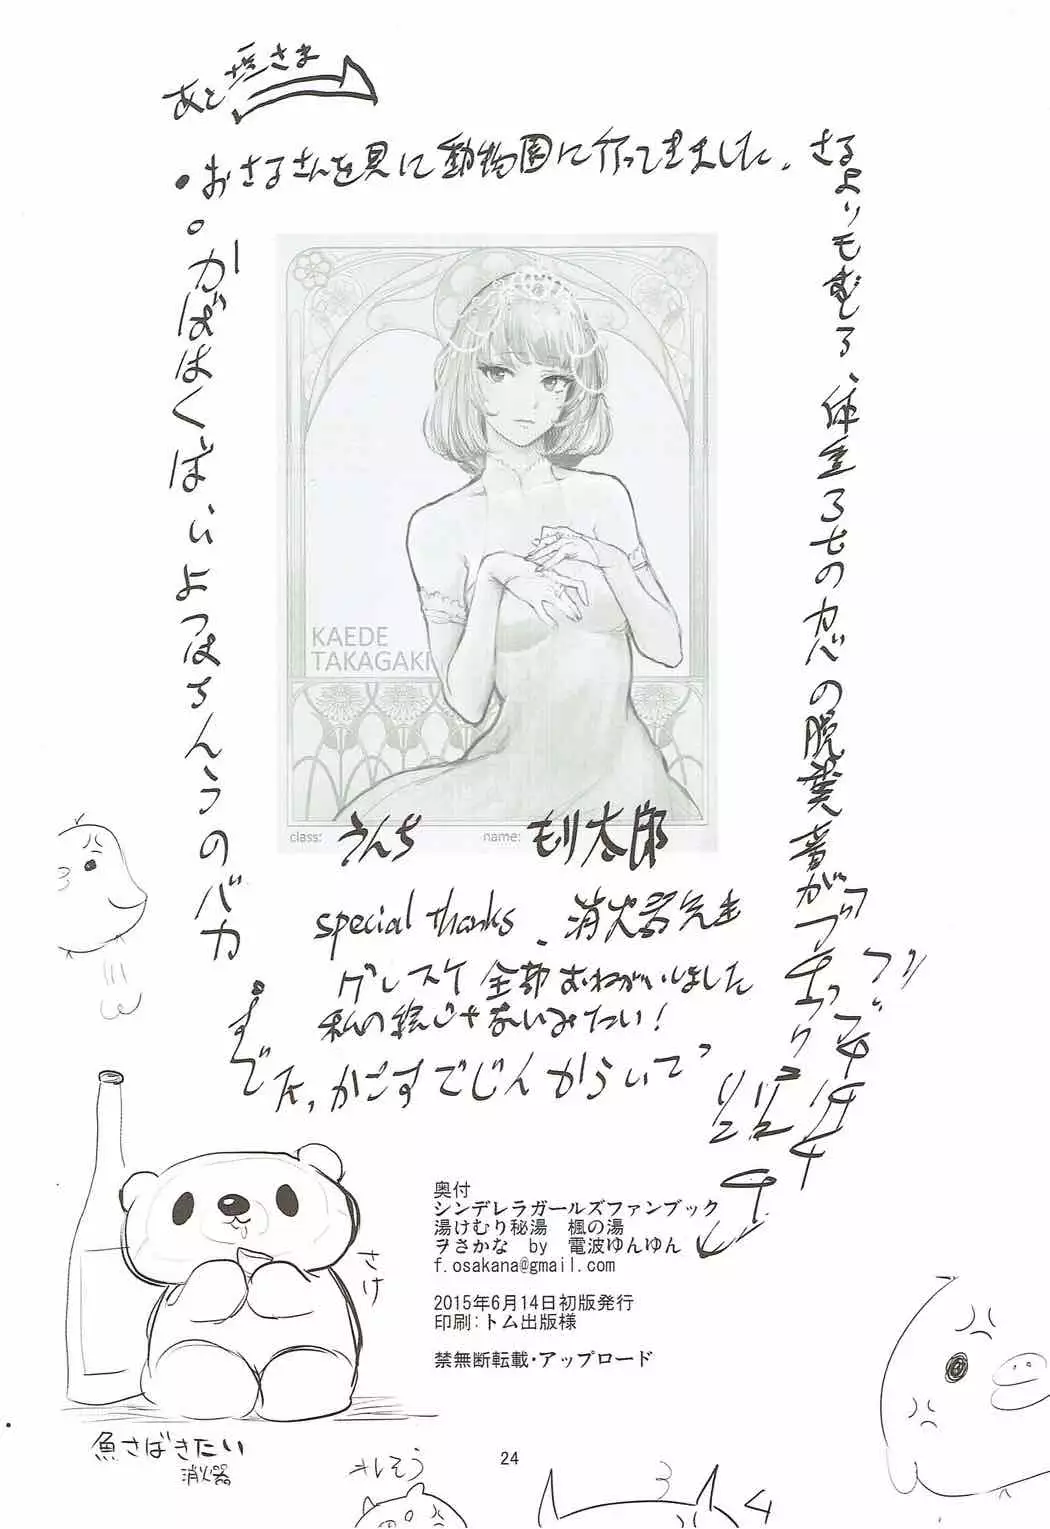 あと塩さま
・おさるさんを見に動物園に行ってきました。さる
よりもむしろ、体重3tのカバの脱糞音が
かばはくばいよつはちんうのバカ
KAEDE
TAKAGAKI
class: うんち name: もり太郎
special thanks、消火器先生
グレスケ全部おねがいしました
私の絵じゃないみたい!
さけ
奥付
シンデレラガールズファンブック
湯けむり秘湯 楓の湯
ヲさかな by 電波ゆんゆん
f.osakana@gmail.com
2015年6月14日初版発行
印刷:トム出版様
禁無断転載・アップロード
魚さばきたい
消火器
24